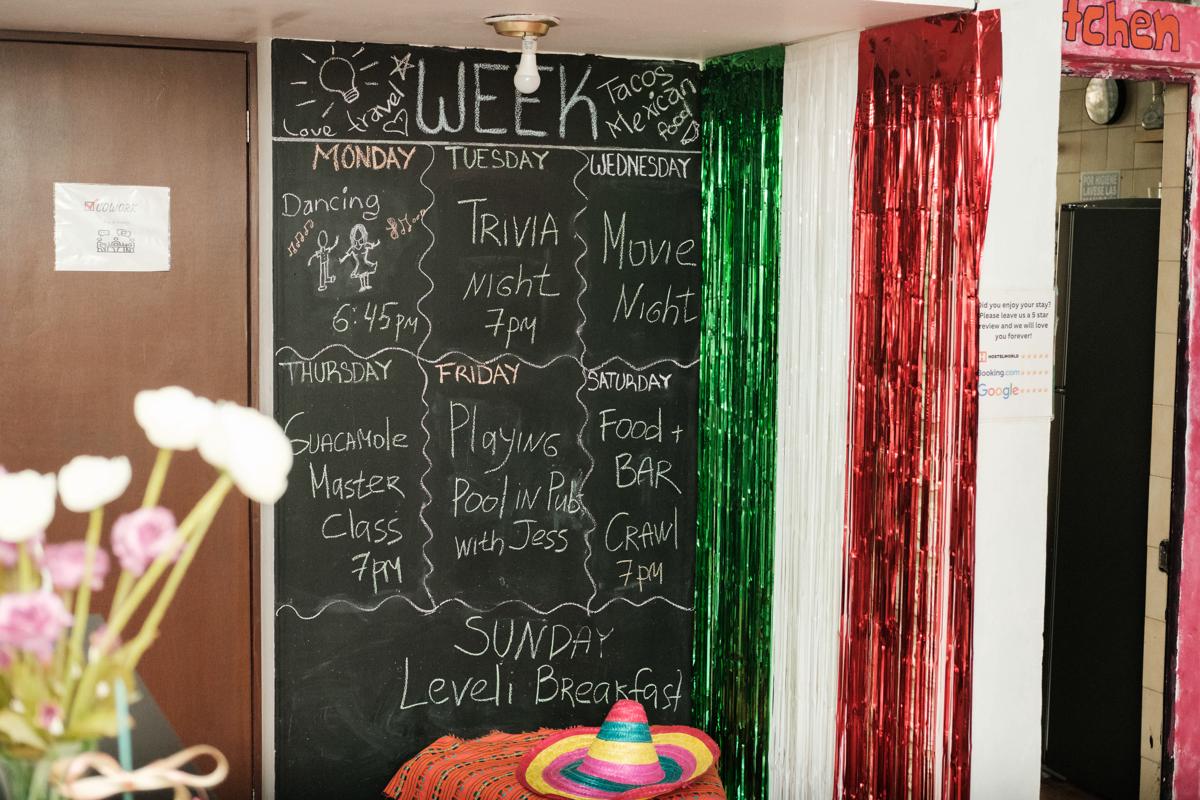 WEEK
Love travel
Tacos
Mexican
food
MONDAY
Dancing
6:45pm
TUESDAY
TRIVIA
NIGHT
7pm
WEDNESDAY
Movie
Night
THURSDAY
GUACAMOLE
Master
Class
7pm
FRIDAY
Playing
Pool in Pub
with Jess
SATURDAY
Food +
BAR
CRAWl
7pm
SUNDAY
Leveli Breakfast
COWORK
tchen
POR HIGIENE
LAVESE LAS
Did you enjoy your stay?
Please leave us a 5 star
review and we will love
you forever!
HOSTELWORLD
Booking.com
Google